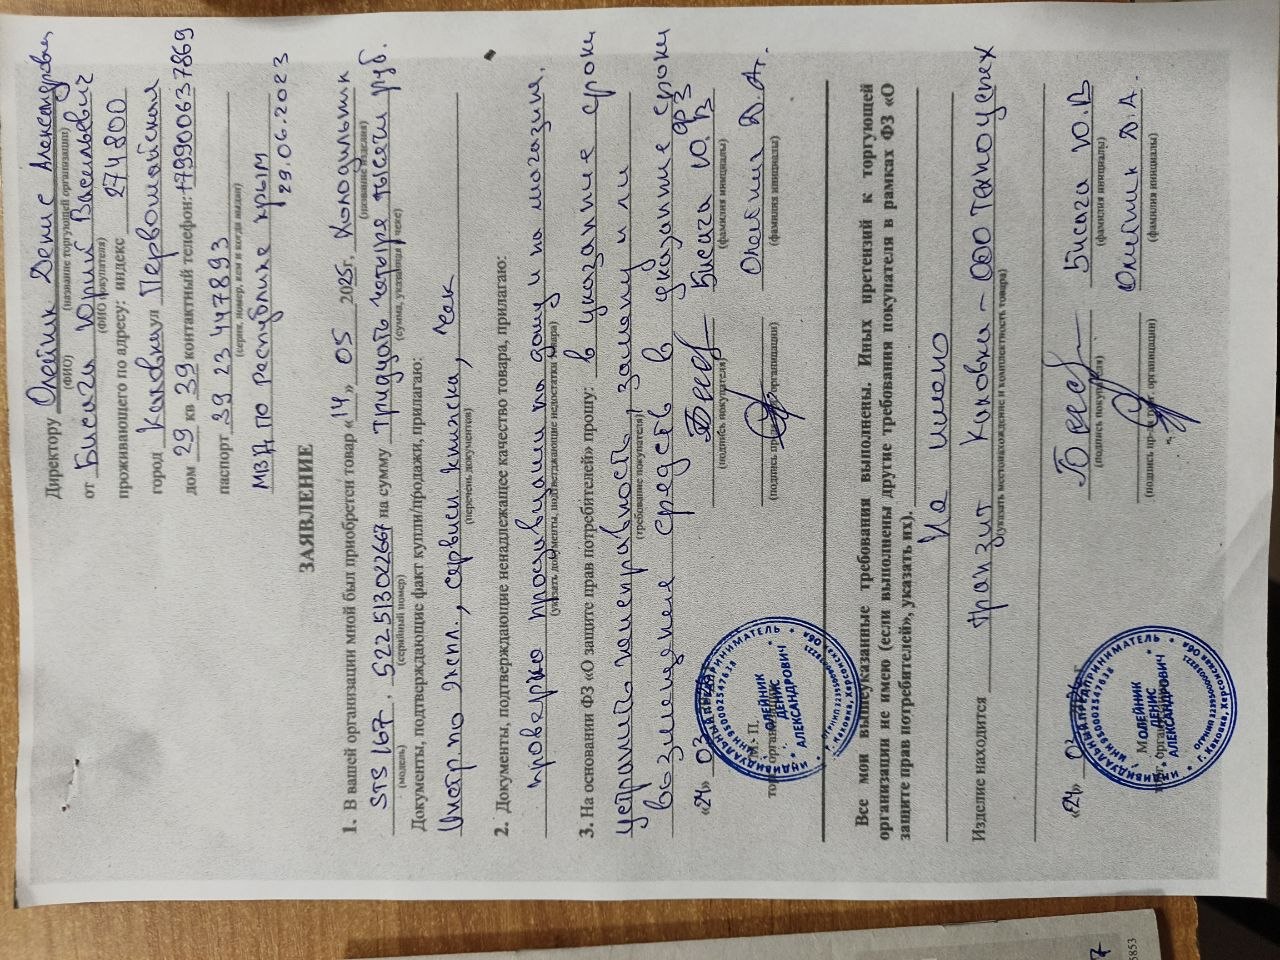 Директору Олейник Денис Александрович
(ФИО) (название торгующей организации)
от Бисаги Юрий Васильевич
(ФИО покупателя)
проживающего по адресу: индекс 274800
город Каховка ул Первомайская
дом 29 кв 39 контактный телефон: +79900637869
паспорт 39 23 447893
(серия, номер, кем и когда выдан)
МВД по Республике Крым
29.06.2023
ЗАЯВЛЕНИЕ
1. В вашей организации мной был приобретен товар «14» 05 2025г, Холодильник
(название изделия)
STS 167, S22513022667 на сумму Тридцать четыре тысячи руб.
(модель) (серийный номер) (сумма, указанная в чеке)
Документы, подтверждающие факт купли/продажи, прилагаю:
Инстр по экспл., сервисн книжка, Чек
(перечень документов)
2. Документы, подтверждающие ненадлежащее качество товара, прилагаю:
проверка продавцами на дому и по магазина.
(указать документы, подтверждающие недостатки товара)
3. На основании ФЗ «О защите прав потребителей» прошу: в указание сроки
устранить неисправность, замену или
(требование покупателя)
возмещение средств в указание сроки
ФЗ
«24» 03 Бисага Ю.В
(подпись покупателя) (фамилия инициалы)
М. П. Олейник Д.А.
(фамилия инициалы)
ИНДИВИДУАЛЬНЫЙ ПРЕДПРИНИМАТЕЛЬ
ИНН 990002547638
ОЛЕЙНИК
ДЕНИС
АЛЕКСАНДРОВИЧ
г. Каховка, Херсонская обл
Все мои вышеуказанные требования выполнены. Иных претензий к торгующей
организации не имею (если выполнены другие требования покупателя в рамках ФЗ «О
защите прав потребителей», указать их).
На имею
Изделие находится транзит Каховка – ООО Техноуспех
(указать местонахождение и комплектность товара)
«24» 03 Бисага Ю.В
(подпись покупателя) (фамилия инициалы)
Олейник Д.А.
(фамилия инициалы)
ИНДИВИДУАЛЬНЫЙ ПРЕДПРИНИМАТЕЛЬ
ИНН 990002547638
ОЛЕЙНИК
ДЕНИС
АЛЕКСАНДРОВИЧ
г. Каховка, Херсонская обл
5853